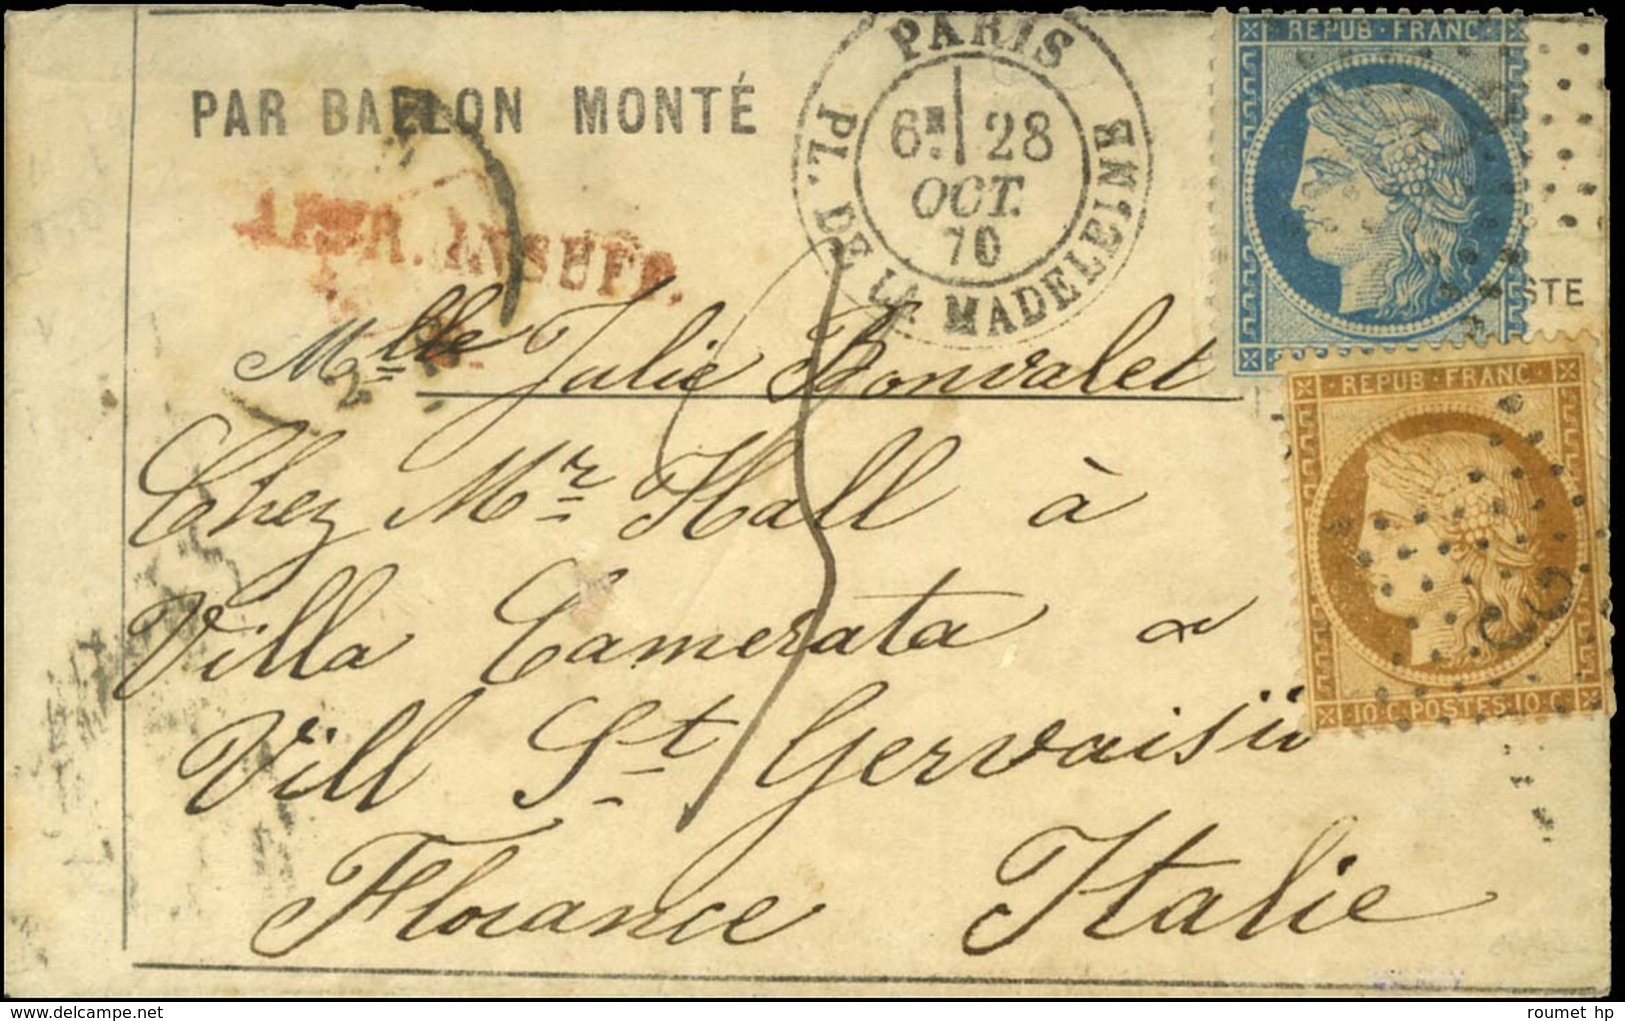 PARIS
PL. DE LA MADELEINE
6E 28
OCT.
70
REPUB·FRANC
PAR BALLON MONTÉ
AFFR. INSUFF.
STE
Mlle Julie Bonvalet
REPUB·FRANC
Chez Mr Hall à
Villa Camerata
Vill St Gervaisii
10·C·POSTES·10·C
Florance Italie
2
www.delcampe.net
roumet hp